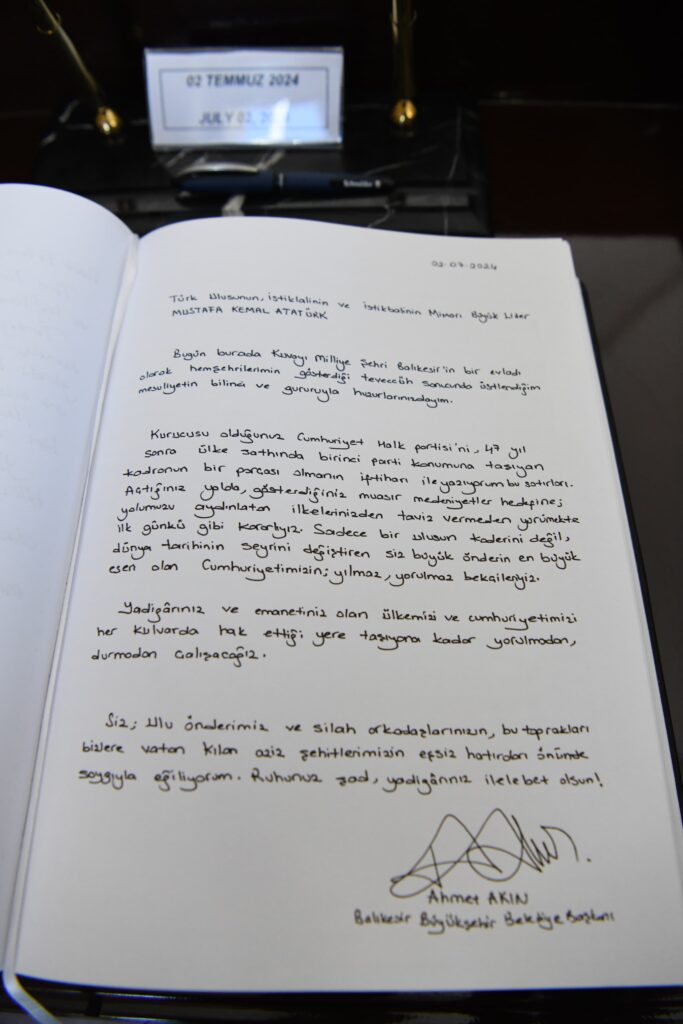 02 TEMMUZ 2024
JULY 02,
Schneider
02.07.2024
Türk Ulusunun, istiklalinin ve istikbalinin Mimarı Büyük Lider
MUSTAFA KEMAL ATATÜRK
Bugün burada Kuvayı Milliye Şehri Balıkesir'in bir evladı
olarak hemşehrilerimin gösterdiği teveccüh sonucunda üstlendiğim
mesuliyetin bilinci ve gururuyla huzurlarınızdayım.
Kurucusu olduğunuz Cumhuriyet Halk partisi'ni, 47 yıl
sonra ülke sathında birinci parti konumuna taşıyan
kadronun bir parçası olmanın iftiharı ile yazıyorum bu satırları.
Açtığınız yolda, gösterdiğiniz muasır medeniyetler hedefine;
yolumuzu aydınlatan ilkelerinizden taviz vermeden yürümekte
ilk günkü gibi kararlıyız. Sadece bir ulusun kaderini değil,
dünya tarihinin seyrini değiştiren siz büyük önderin en büyük
eseri olan Cumhuriyetimizin; yılmaz, yorulmaz bekçileriyiz.
Yadigârınız ve emanetiniz olan ülkemizi ve cumhuriyetimizi
her kulvarda hak ettiği yere taşıyana kadar yorulmadan,
durmadan çalışacağız.
Siz; Ulu önderimiz ve silah arkadaşlarınızın, bu toprakları
bizlere vatan kılan aziz şehitlerimizin eşsiz hatıraları önünde
saygıyla eğiliyorum. Ruhunuz şad, yadigârınız ilelebet olsun!
Ahmet AKIN
Balıkesir Büyükşehir Belediye Başkanı